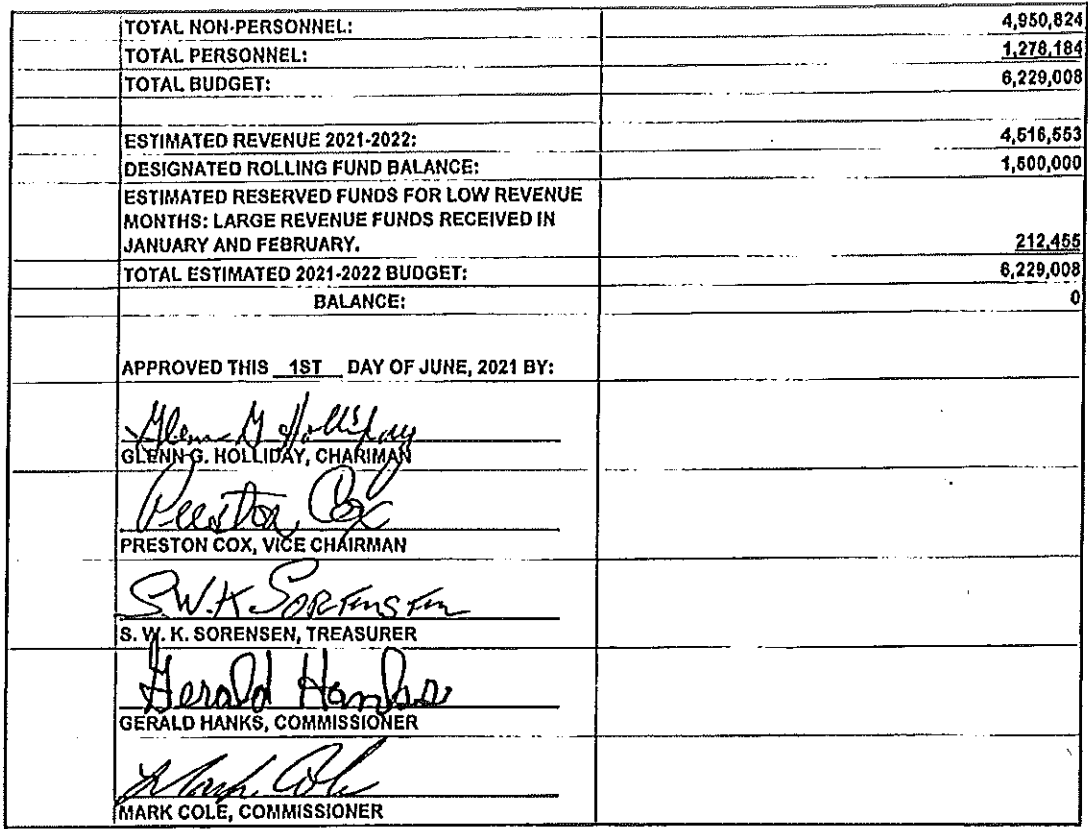 TOTAL NON-PERSONNEL: 4,950,824
TOTAL PERSONNEL: 1,278,184
TOTAL BUDGET: 6,229,008
ESTIMATED REVENUE 2021-2022: 4,516,553
DESIGNATED ROLLING FUND BALANCE: 1,500,000
ESTIMATED RESERVED FUNDS FOR LOW REVENUE
MONTHS: LARGE REVENUE FUNDS RECEIVED IN
JANUARY AND FEBRUARY. 212,455
TOTAL ESTIMATED 2021-2022 BUDGET: 6,229,008
BALANCE: 0
APPROVED THIS 1ST DAY OF JUNE, 2021 BY:
Glenn G Holliday
GLENN G. HOLLIDAY, CHARIMAN
Preston Cox
PRESTON COX, VICE CHAIRMAN
S.W.K SORENSEN
S. W. K. SORENSEN, TREASURER
Gerald Hanks
GERALD HANKS, COMMISSIONER
Mark Cole
MARK COLE, COMMISSIONER